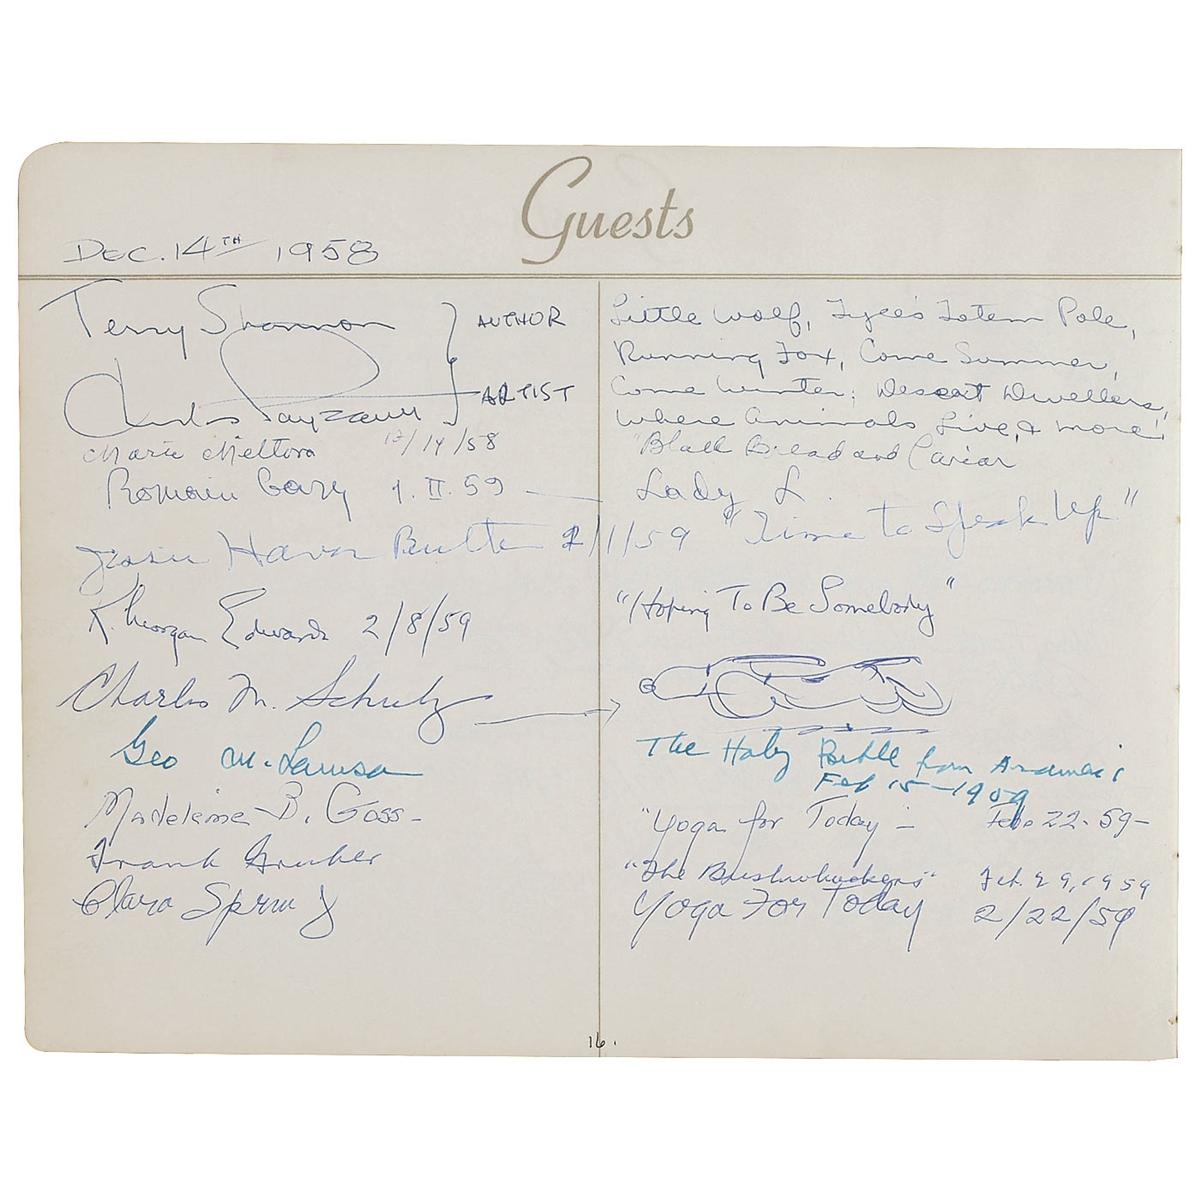 Guests
Dec. 14TH 1958
Terry Shannon
AUTHOR
Charles Payzant
ARTIST
Little Wolf, Tyee's Totem Pole,
Running Fox, Come Summer,
Come Winter; Desert Dwellers,
Where Animals Live, & more!
Marie 12/14/58
"Black Bread and Caviar
Romain Gary 1.II.59
Lady L.
Jessie Haver Butler 2/1/59 "Time to Speak Up"
K. Morgan Edwards 2/8/59
"Hoping To Be Somebody"
Charles M. Schulz
Geo M. Lamsa
The Holy Bible from Aramaic
Feb 15-1959
Madeleine B. Goss-
"Yoga for Today - Feb. 22-59-
Frank Gruber
"The Bushwhackers" Feb. 22, 1959
Clara Spring
Yoga For Today 2/22/59
16.